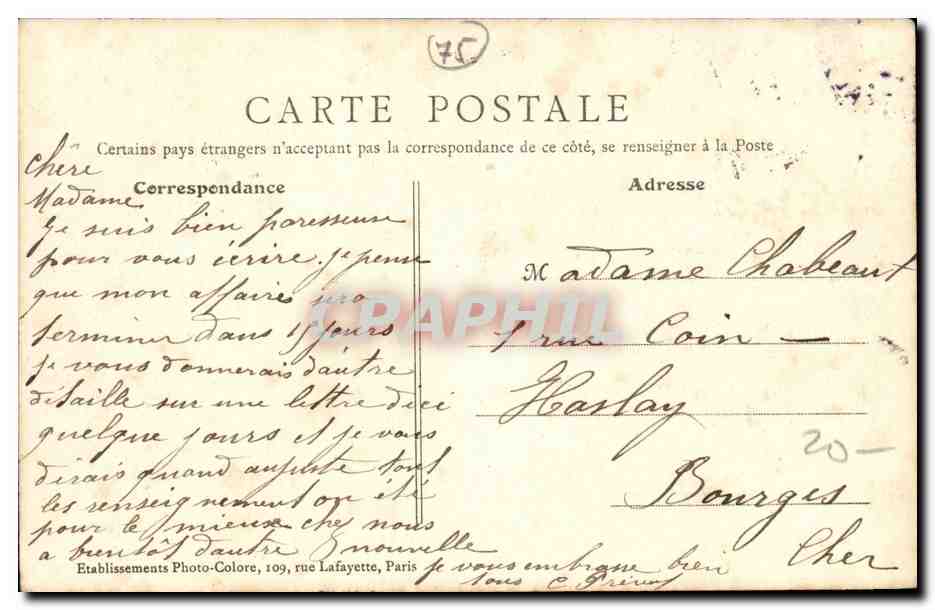 75
CARTE POSTALE
Certains pays étrangers n'acceptant pas la correspondance de ce côté, se renseigner à la Poste
Correspondance
chère
Madame
Je suis bien paresseuse
pour vous écrire. je pense
que mon affaire sera
terminer dans 15 jours
je vous donnerais dautre
détaille sur une lettre dici
quelque jours et je vous
dirais quand auguste tout
les renseignement on été
pour le mieux chez nous
a bientôt dautre nouvelle
je vous embrasse bien
tous
Adresse
Madame Chabeaut
1 rue Coin –
Haslay
Bourges
Cher
20 –
CRAPHIL
Etablissements Photo-Colore, 109, rue Lafayette, Paris